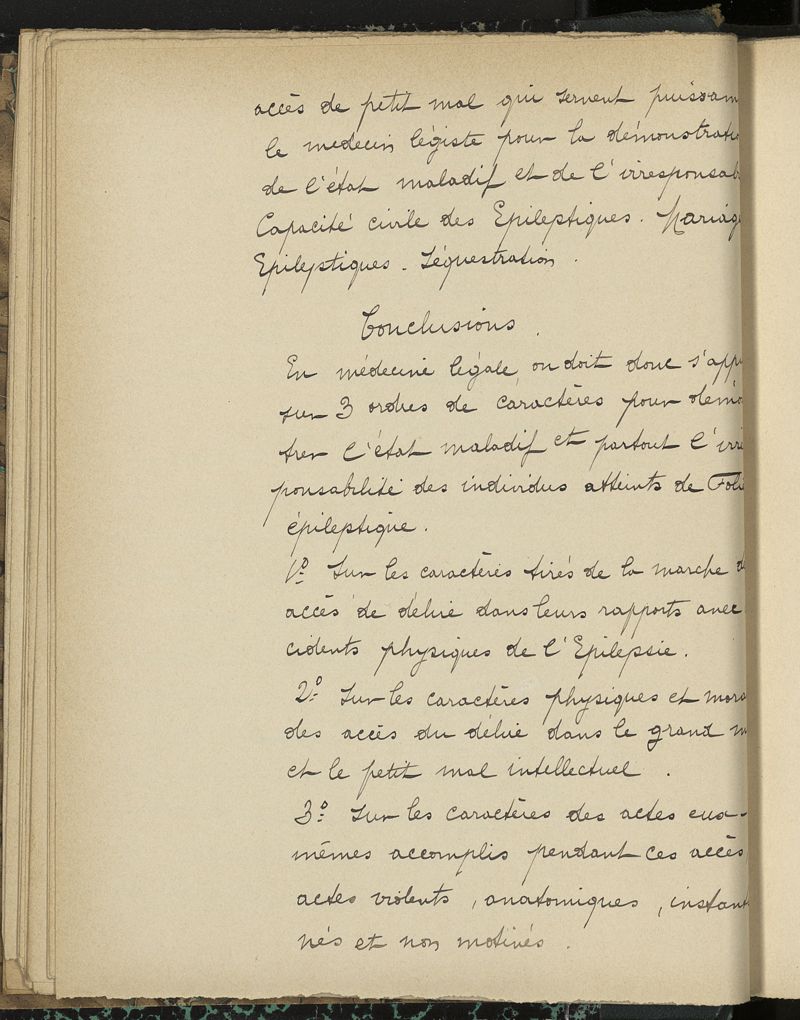 accès de petit mal qui servent puissam
le médecin légiste pour la démonstratio
de l'état maladif et de l'irresponsab
Capacité civile des Epileptiques. Mariag
Epileptiques. Séquestration.
Conclusions.
En médecine légale, on doit donc s'appu
sur 3 ordres de caractères pour démo
trer l'état maladif et partout l'irre
ponsabilité des individus atteints de Folie
épileptique.
1º Sur les caractères tirés de la marche d
accès de délire dans leurs rapports avec
cidents physiques de l'Epilepsie.
2º Sur les caractères physiques et mora
des accès du délire dans le grand m
et le petit mal intellectuel.
3º Sur les caractères des actes eux-
mêmes accomplis pendant ces accès
actes violents, anatomiques, instant
nés et non motivés.